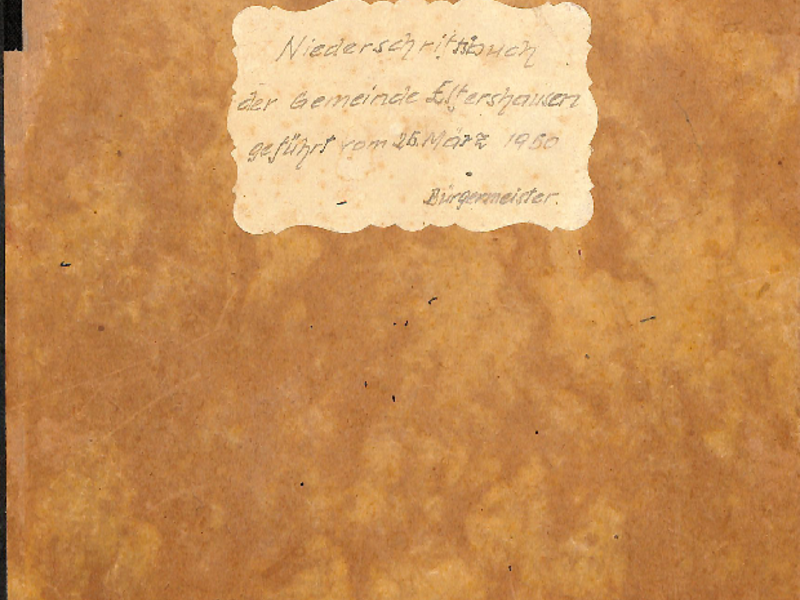 Niederschriftsbuch
der Gemeinde Elfershausen
geführt vom 25. März 1950
Bürgermeister.